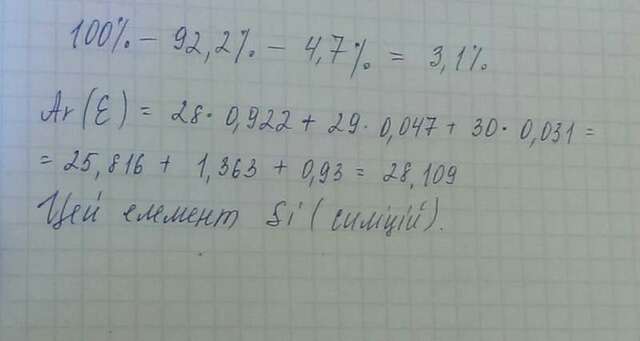 100% - 92,2% - 4,7% = 3,1%
Ar(Е) = 28·0,922 + 29·0,047 + 30·0,031 =
= 25,816 + 1,363 + 0,93 = 28,109
Цей елемент Si (силіцій).